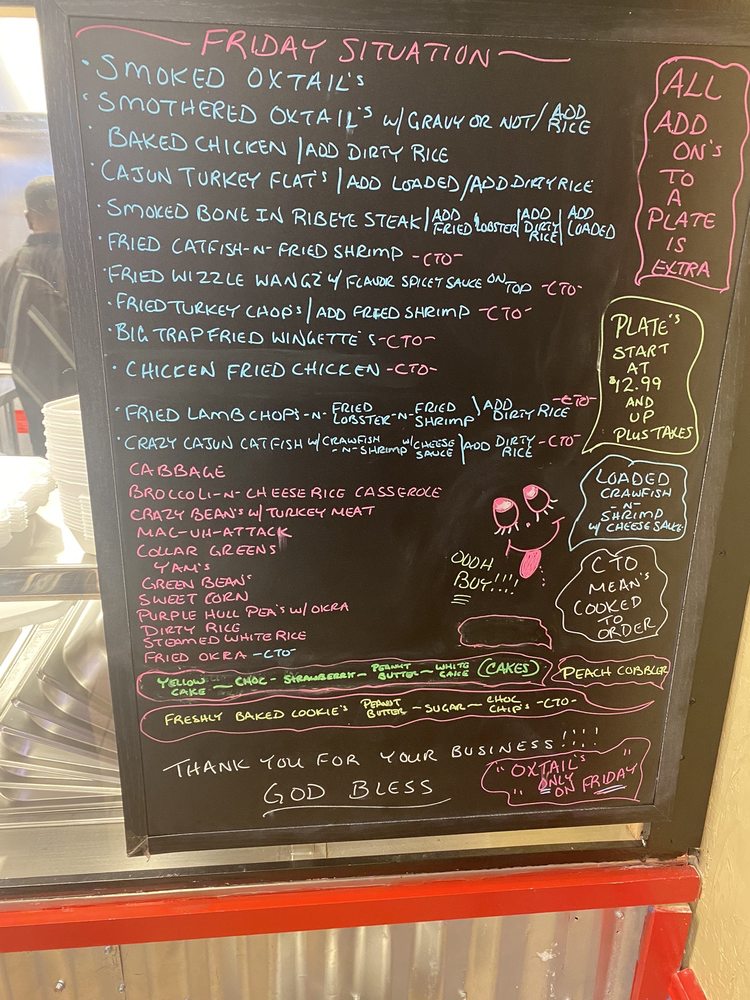 FRIDAY SITUATION
• SMOKED OXTAIL'S
• SMOTHERED OXTAIL'S W/ GRAVY OR NOT / ADD RICE
• BAKED CHICKEN | ADD DIRTY RICE
• CAJUN TURKEY FLAT'S | ADD LOADED / ADD DIRTY RICE
• SMOKED BONE IN RIBEYE STEAK | ADD FRIED LOBSTER | ADD DIRTY RICE | ADD LOADED
• FRIED CATFISH -N- FRIED SHRIMP -CTO-
• FRIED WIZZLE WANGZ W/ FLAVOR SPICEY SAUCE ON TOP -CTO-
• FRIED TURKEY CHOP'S | ADD FRIED SHRIMP -CTO-
• BIG TRAP FRIED WINGETTE'S -CTO-
• CHICKEN FRIED CHICKEN -CTO-
• FRIED LAMB CHOP'S -N- FRIED LOBSTER -N- FRIED SHRIMP | ADD DIRTY RICE -CTO-
• CRAZY CAJUN CATFISH W/ CRAWFISH -N- SHRIMP W/ CHEESE SAUCE | ADD DIRTY RICE -CTO-
CABBAGE
BROCCOLI -N- CHEESE RICE CASSEROLE
CRAZY BEAN'S W/ TURKEY MEAT
MAC-UH-ATTACK
COLLAR GREENS
YAM'S
GREEN BEAN'S
SWEET CORN
PURPLE HULL PEA'S W/ OKRA
DIRTY RICE
STEAMED WHITE RICE
FRIED OKRA -CTO-
YELLOW CAKE - CHOC - STRAWBERRY - PEANUT BUTTER - WHITE CAKE CAKES
PEACH COBBLER
FRESHLY BAKED COOKIE'S PEANUT BUTTER - SUGAR - CHOC CHIP'S -CTO-
THANK YOU FOR YOUR BUSINESS!!!!
GOD BLESS
"OXTAIL'S "
" ONLY
ON FRIDAY
ALL
ADD
ON'S
TO
A
PLATE
IS
EXTRA
PLATE'S
START
AT
$12.99
AND
UP
PLUS TAXES
LOADED
CRAWFISH
-N-
SHRIMP
W/ CHEESE SAUCE
OOOH
BUY!!!!
CTO
MEAN'S
COOKED
TO
ORDER